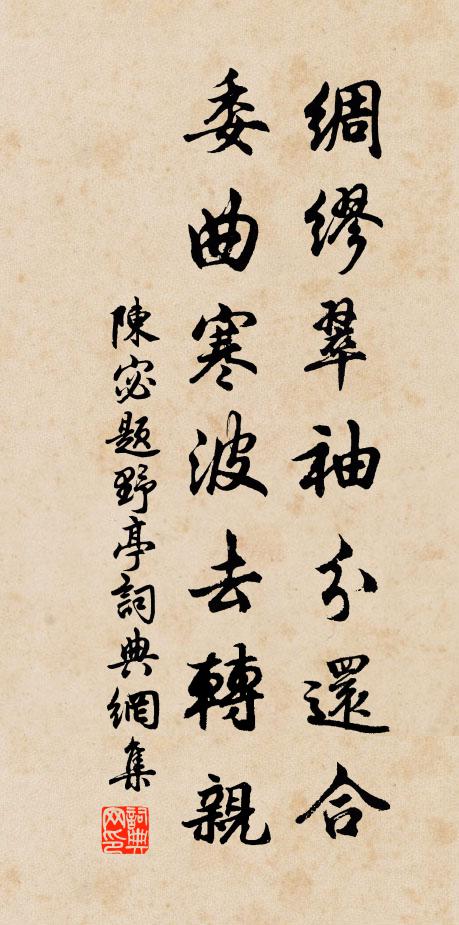 綢繆翠袖分還合
委曲寒波去轉親
陳宓題野亭詞典網集
詞典网印